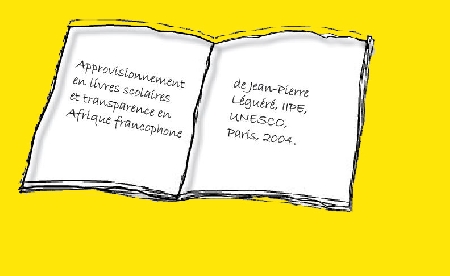 Approvisionnement
en livres scolaires
et transparence en
Afrique francophone
de Jean-Pierre
Léguéré, IIPE,
UNESCO,
Paris, 2004.